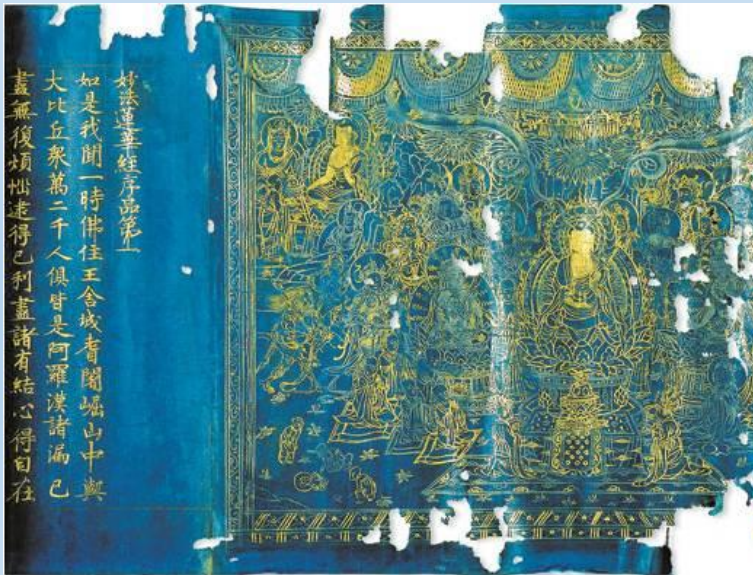 妙法蓮華經序品第一
如是我聞一時佛住王舍城耆闍崛山中與
大比丘衆萬二千人俱皆是阿羅漢諸漏已
盡無復煩惱逮得己利盡諸有結心得自在